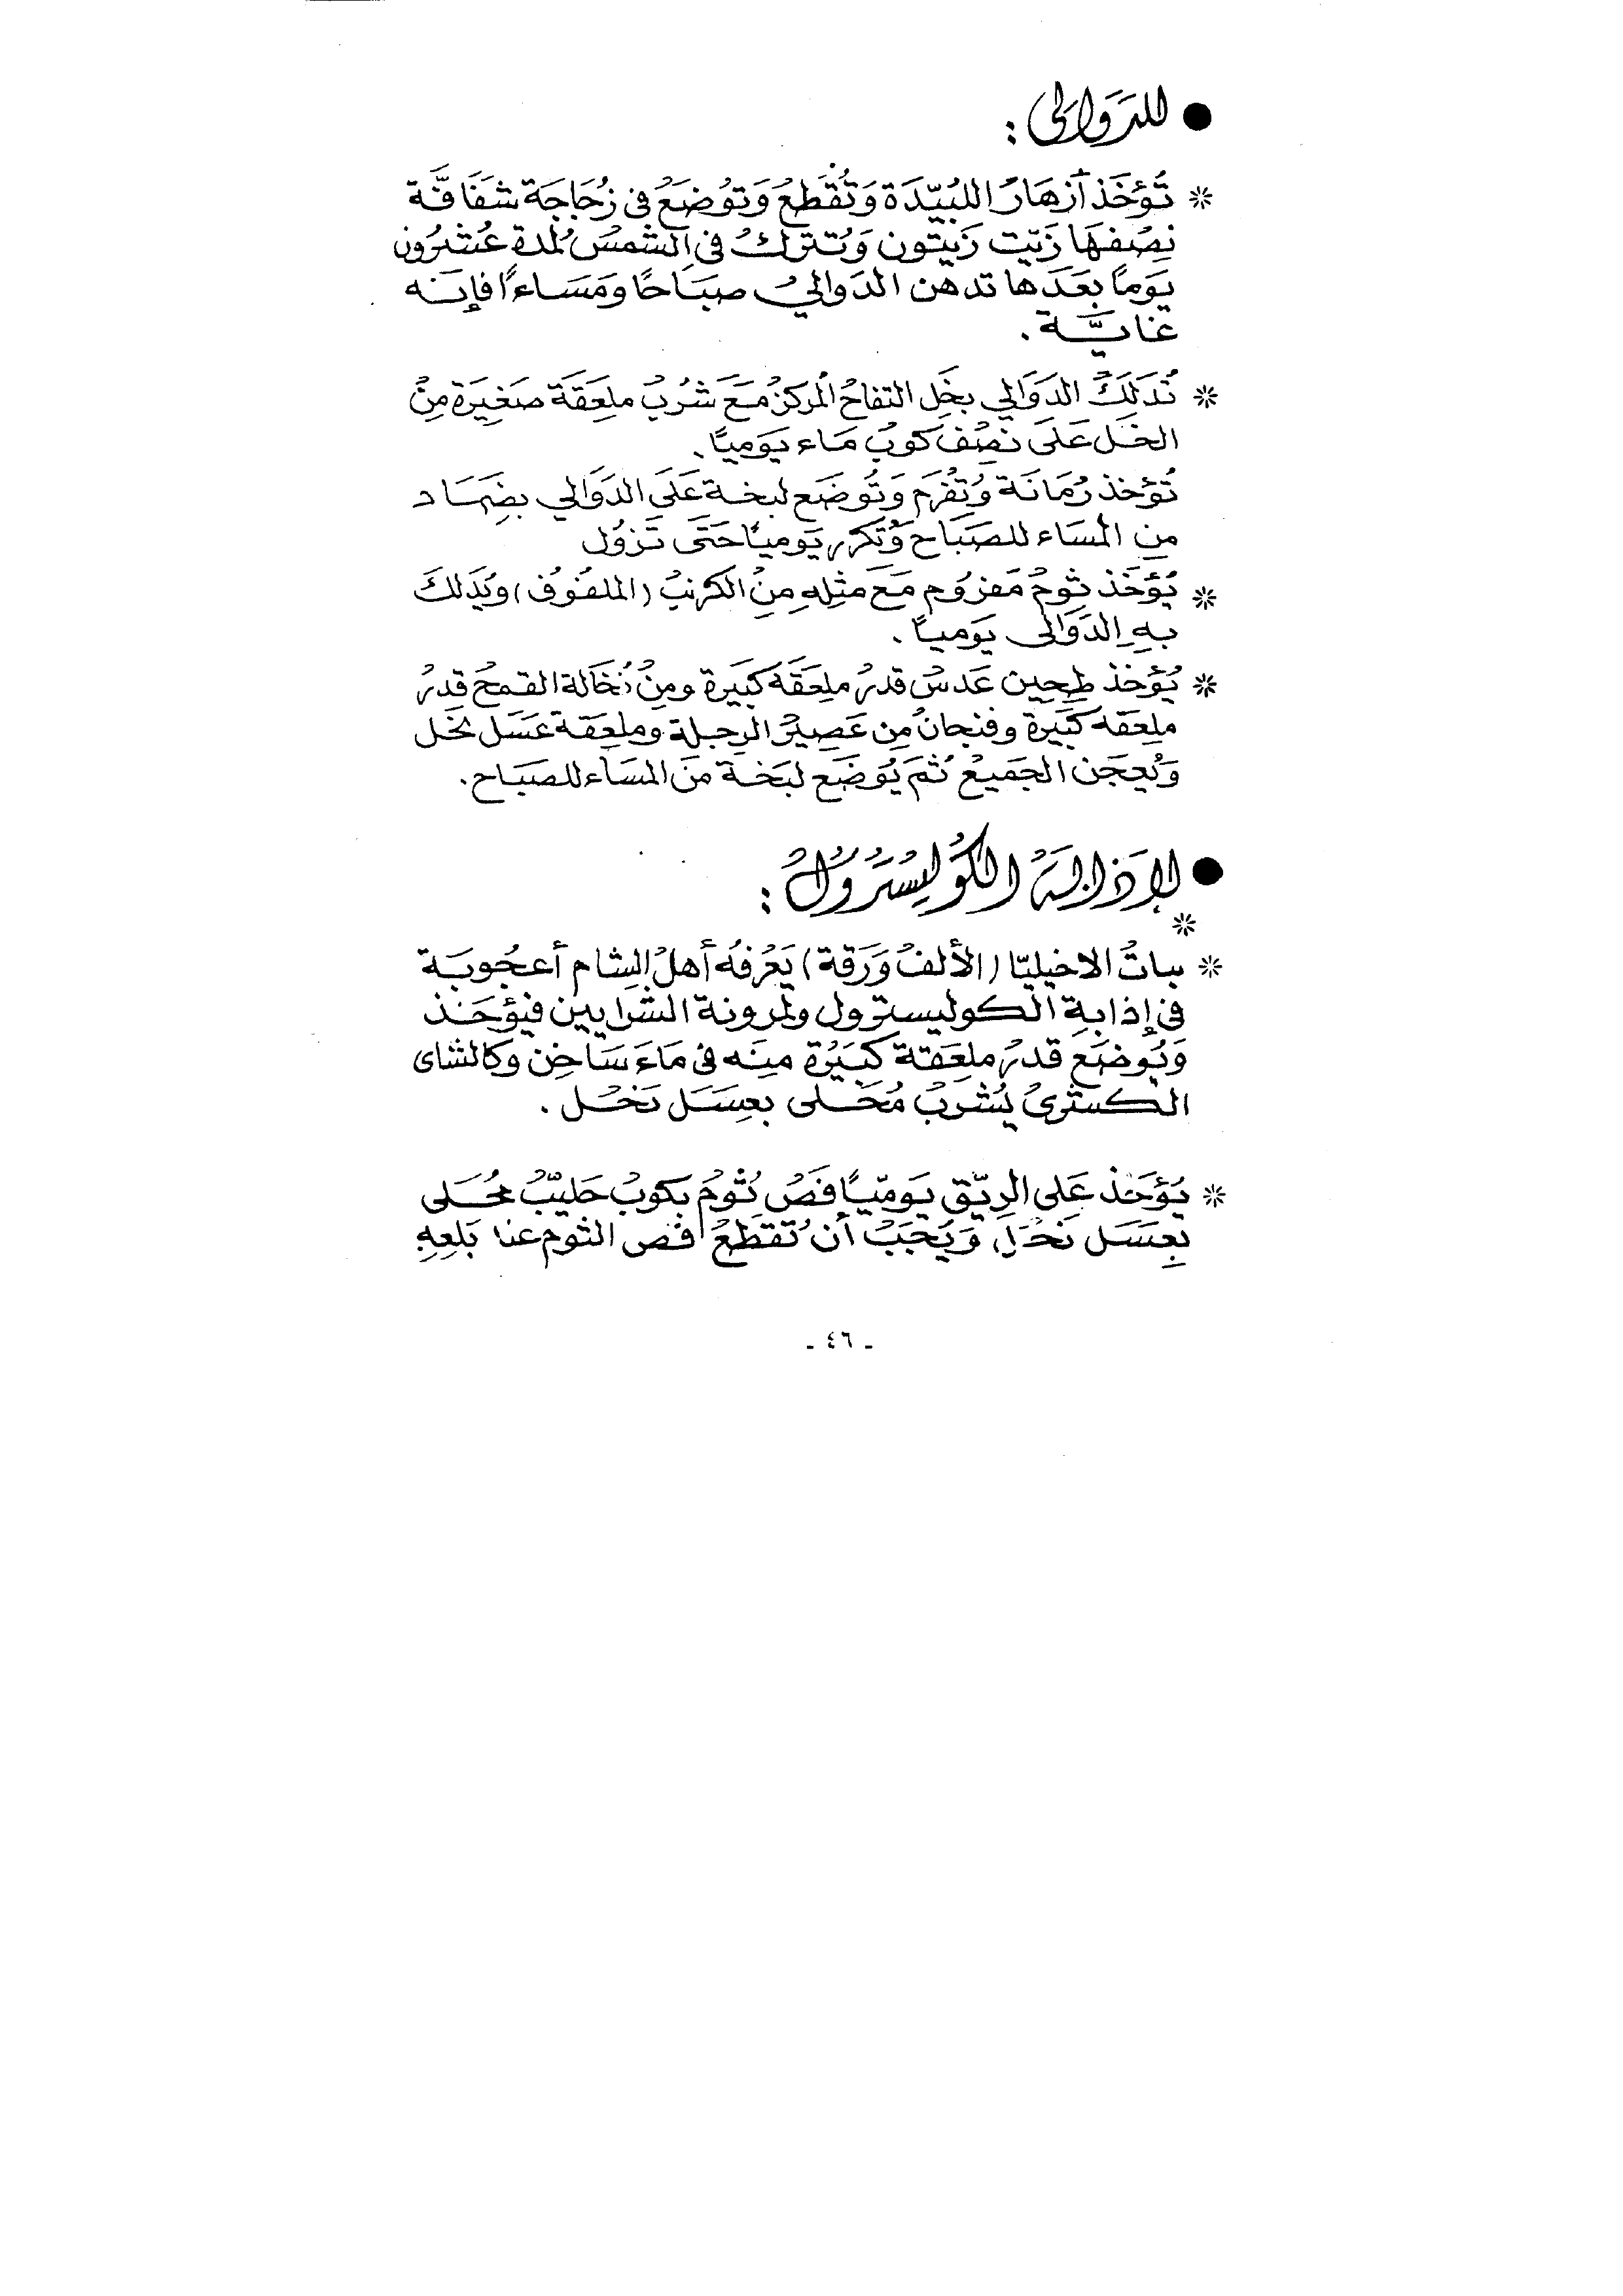 ● للدَّوَالى :
* تُؤخَذ أزهَارُ اللبُيّدَة وَتُقَطعُ وَتوُضَعُ فى زُجَاجَة شفَافَّة
نِصْفهَا زَيّت زَيتون وَتُترك فى الشمسُ لمدة عُشرُون
يَومًا بعَدَها تدهن الدَوالي صبَاحًا ومَسَاءً فإنَه
غايَّة .
* تُدَلَكُ الدَوَالي بخَل التفاحُ المركزُ مَعَ شُربُ ملعَقَة صَغِيَرة مِنْ
الخَل عَلَى نصْفَ كوبُ مَاء يَوميًا .
تُؤخذ رُمَانَة وُتفُرَم وَتُوضَع لبخة عَلَى الدَوَالي بضِمَاد
من المسَاء للصَبَاح وَتُكَرر يَوميًا حَتَى تَزوُل
* يُؤخَذ ثومُ مَفرُوم مَعَ مثِلهِ مِنْ الكرنبُ (الملفُوُف) ويُدَلكَ
بهِ الدَوَالى يَوميًا .
* يُؤخَذ طحِين عَدسْ قدرُ ملعَقَة كَبيَرة ومِنْ نُخَالة القمحُ قدِرُ
ملعَقه كَبيَرة وفنجانُ مِن عَصِيرُ الرجلة وملعقة عَسَل نحَل
وَيُعجَن الجَميعُ ثُمَ يُوَضَع لبَخَة منَ المسَاء للصَبَاح .
● لإذَابَةُ الكُولِيسْتَرُولُ :
*
* نباتُ الاخيليّا (الألفُ وَرَقة) يَعُرفهُ أهلُ الشام أعجُوبَة
فى إذابةِ الكوليسترول ولمرونة الشرايين فيُؤخَذ
وَيُوضَع قدرُ ملعَقة كَبَيُرة منِه فى مَاءَ سَاخن وكالشاى
الكسترىُ يُشرَبُ مُحَلى بعِسَل نَحُل .
* يُؤخَذ عَلى الرِيّق يَومّيًا فَصُ ثُومَ بكوبُ حَليّبُ محُلى
بِعسَل نَحُل وَيَجَبُ أنُ تقطَعُ فص الثوم عنا بَلعِهِ
- ٤٦ -